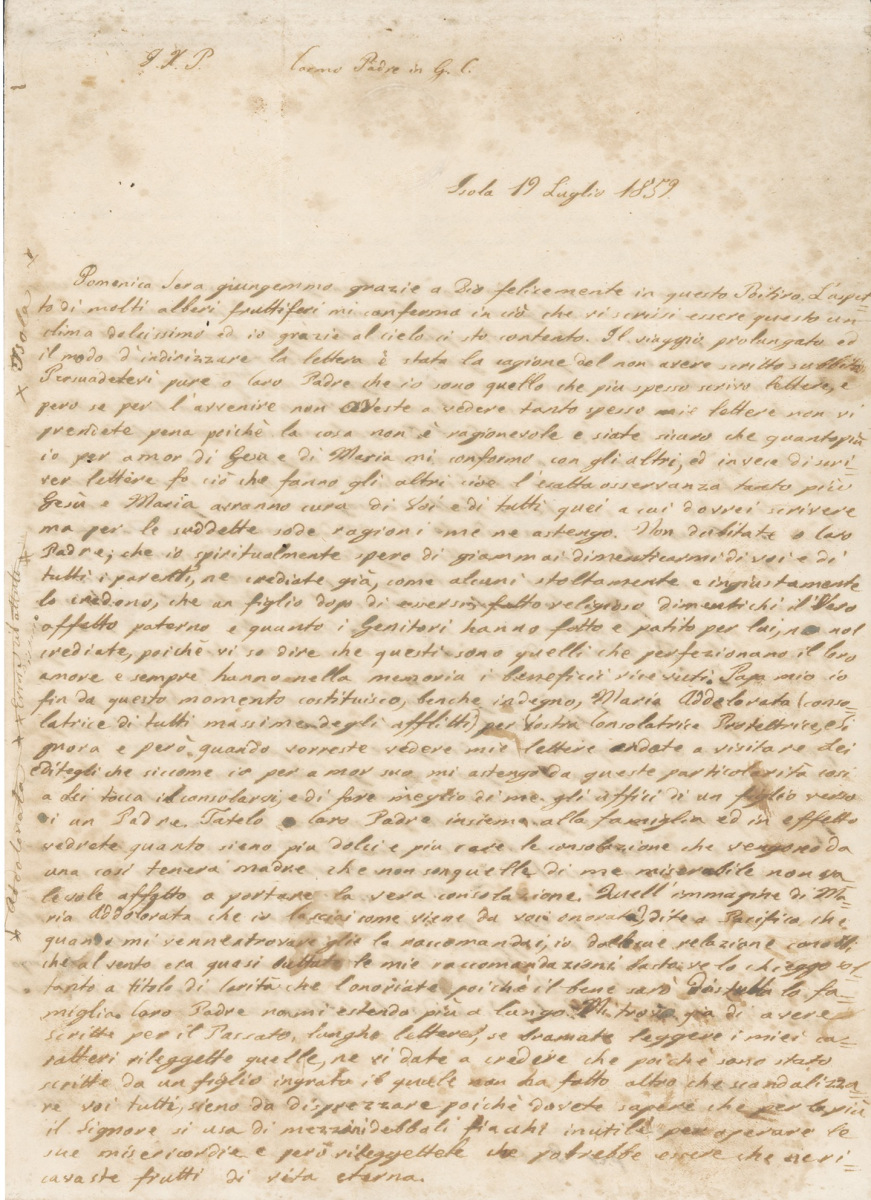 J. X. P.
Carmo Padre in G. C.
Isola 19 Luglio 1859
Domenica Sera giungemmo grazie a Dio felicemente in questo Ritiro. L'aspet-
to di molti alberi fruttiferi mi conferma in ciò che vi scrissi essere questo un
clima dolcissimo ed io grazie al cielo ci sto contento. Il viaggio prolungato ed
il modo d'indirizzare la lettera è stata la cagione del non avere scritto subbito
Persuadetevi pure o Caro Padre che io sono quello che più spesso scrivo lettere, e
però se per l'avvenire non aveste a vedere tanto spesso mie lettere non vi
prendete pena poichè la cosa non è ragionevole e siate sicuro che quanto più
io per amor di Gesù e di Maria mi conformo con gli altri, ed invece di scri=
ver lettere fo ciò che fanno gli altri cioè l'esatta osservanza tanto più
Gesù e Maria avranno cura di Voi e di tutti quei a cui dovrei scrivere
ma per le suddette sode ragioni me ne astengo. Non dubitate o Caro
Padre, che io spiritualmente spero di giammai dimenticarmi di voi e di
tutti i parenti, ne crediate già, come alcuni stoltamente e ingiustamente
lo credono, che un figlio dopo di essersi fatto religioso dimentichi il Vero
affetto paterno e quanto i Genitori hanno fatto e patito per lui, no nol
crediate, poichè vi so dire che questi sono quelli che perfezionano il loro
amore e sempre hanno nella memoria i beneficii ricevuti. Papa mio io
fin da questo momento costituisco, benche indegno, Maria Addolorata (conso=
latrice di tutti massime degli afflitti) per Vostra Consolatrice Protettrice, e Si
gnora e però quando vorreste vedere mie lettere andate a visitare Lei
e ditegli che siccome io per amor suo mi astengo da queste particolarità così
a Lei tocca il consolarvi, e di fare meglio di me gli uffici di un figlio verso
di un Padre. Fatelo o Caro Padre insieme alla famiglia ed in effetto
vedrete quanto sieno più dolci e più care le consolazione che vengono da
una così tenera madre che non son quelle di me miserabile non va
levole affatto a portare la vera consolazione. Quell'immagine di Ma=
ria Addolorata che io lasciai come viene da voi onorata? dite a Pacifico che
quando mi venne trovare glie la raccomandai, io dalle sue relazione conobbi
che al vento era quasi buttate le mie raccomandazioni basta ve lo chieggo sol=
tanto a titolo di Carità che l'onoriate poichè il bene sarà di tutta la fa=
miglia. Caro Padre non mi estendo più a lungo. Mi trovo già di avere
scritte per il Passato, lunghe lettere, se bramate leggere i miei ca=
ratteri rileggette quelle, ne vi date a credere che poichè sono state
scritte da un figlio ingrato il quale non ha fatto altro che scandalizza=
re voi tutti, sieno da disprezzare poichè dovete sapere che per lo più
il Signore si usa di mezzi debbali fiacchi inutili per operare le
sue misericordie e però rileggettele che potrebbe essere che ne ri=
cavaste frutti di vita eterna.
x Isola x
x Addolorata x